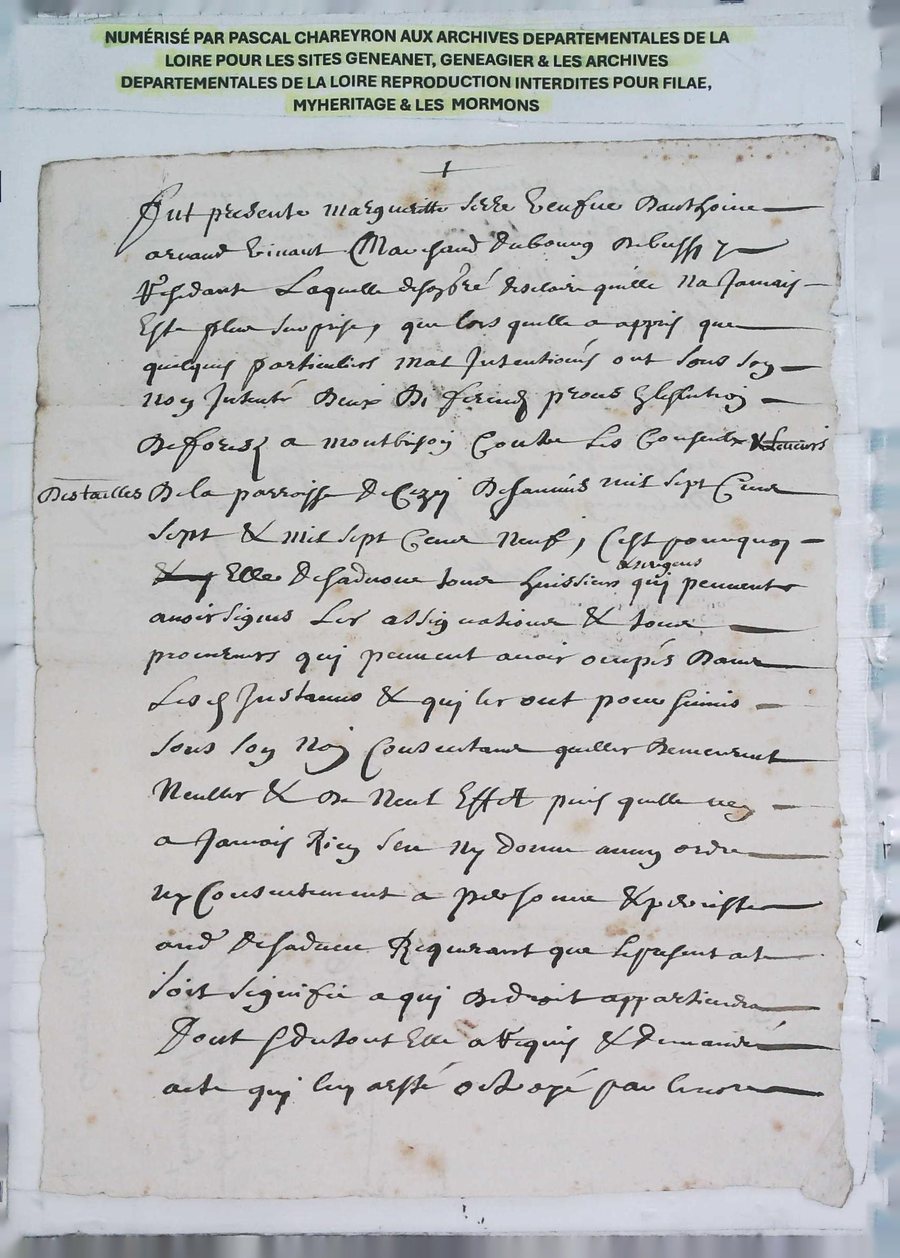 NUMÉRISÉ PAR PASCAL CHAREYRON AUX ARCHIVES DEPARTEMENTALES DE LA
LOIRE POUR LES SITES GENEANET, GENEAGIER & LES ARCHIVES
DEPARTEMENTALES DE LA LOIRE REPRODUCTION INTERDITES POUR FILAE,
MYHERITAGE & LES MORMONS
1
Fut presente Margueritte Serre veufue Danthoine
arnaud vivant Marchand du bourg de bussy y
Residante Laquelle de son gré desclaire quelle Na Jamais
Esté plus surprise, que lors quelle a appris que
quelques particuliers mal Intentionés ont sous son
Nom Intenté deux en Leslection
de forest a montbrison Contre Les Consuls
Des tailles De la parroisse de Cezay Des années mil sept Cent
sept & mil sept Cent Neuf, Cest pourquoy
& sergens
Elle desadvoue tous huissiers qui peuvent
avoir signes Les assignations & tous
procureurs qui peuvent avoir ocupés Dans
Lesd Instances & qui les ont poursuivis
sous son Nom Consentant quelles Demeurent
Nulles & De Neul Effet puis quelle ney
a Jamais Rien seu ny donne aucun ordre
ny Consentement a personne & persiste
aud desadveu Requerant que le present acte
soit signifié a qui De droit appartiendra
Dont & du tout Elle a Requis & demandé
acte qui luy a esté octroyé par le nore